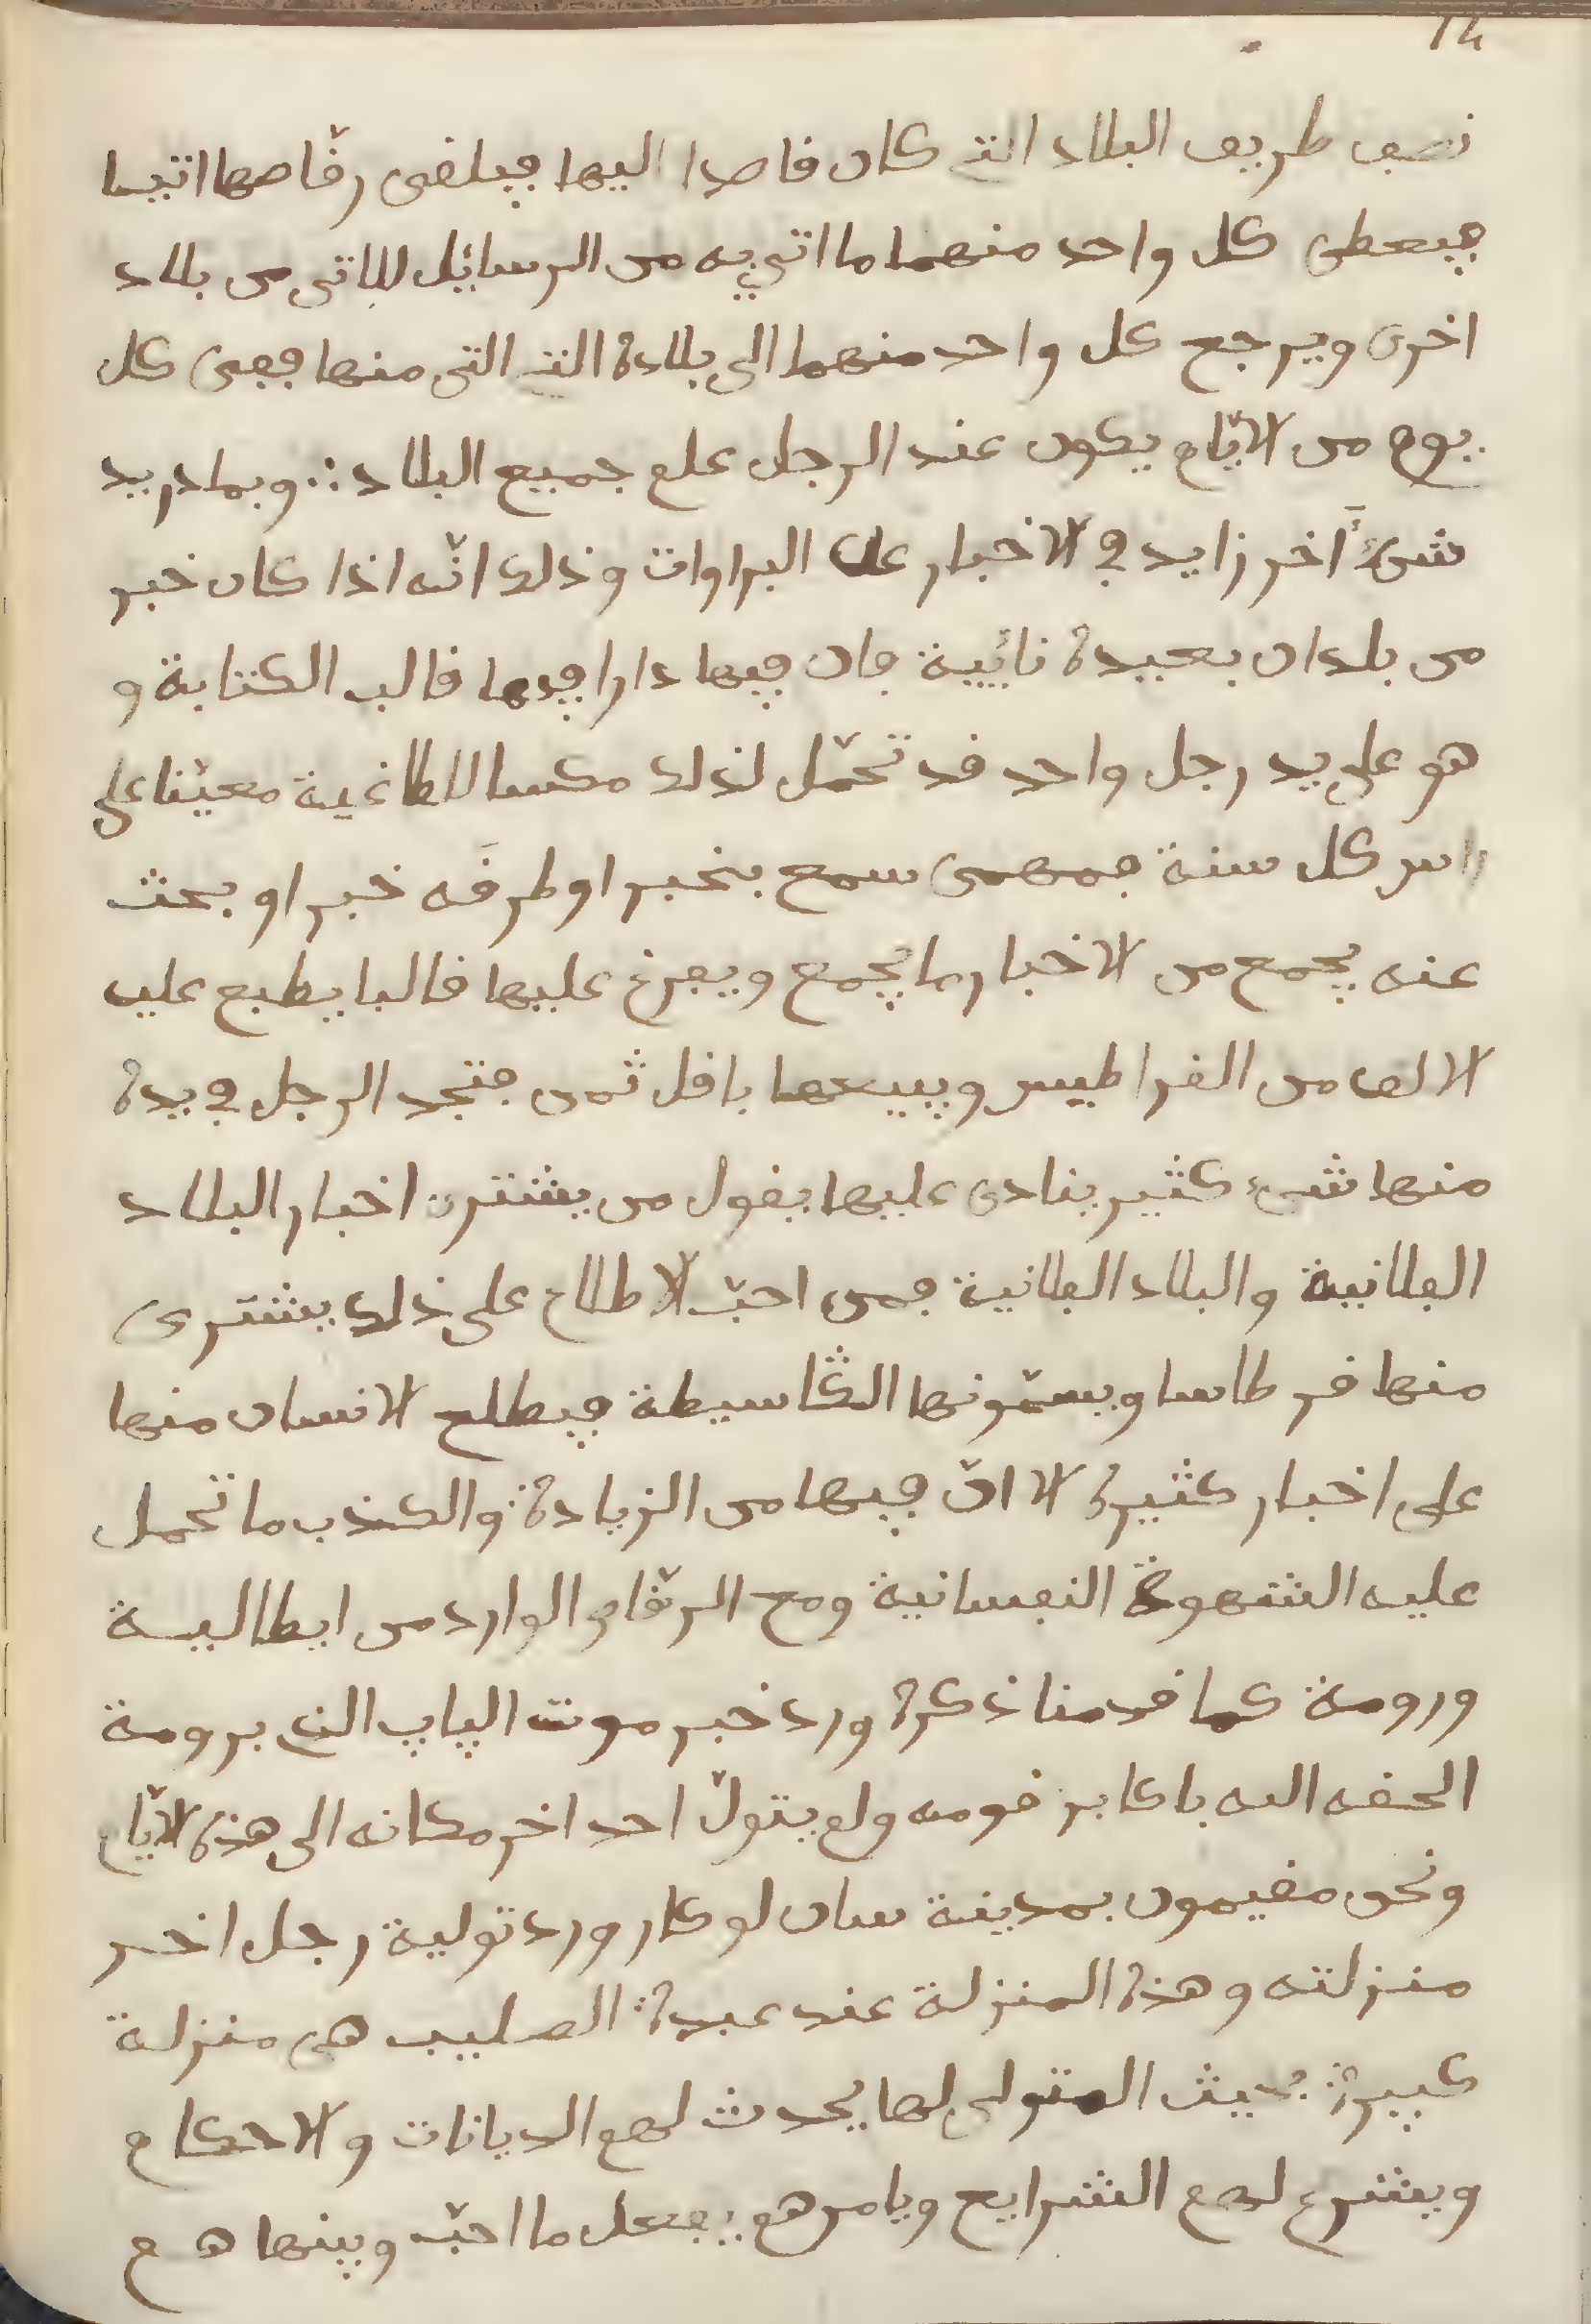 14
نصف طريق البلاد التي كان قاصدا اليها فيلقى رقّاصها اتيا
فيعطى كل واحد منهما ما اتى به من الرسائل للاتى من بلاد
اخرى ويرجع كل واحد منهما الى بلاده التي اتى منها ففى كل
يوم من الايّام يكون عند الرجل علم جميع البلاد ∴ وبمادريد
شىءٌ آخر زايد في الاخبار على البراوات وذلك انّه اذا كان خبر
من بلدان بعيدة نائية فان فيها دارا فيها قالب الكتابة و
هو على يد رجل واحد قد تحمّل لذلك مكسا للطاغية معيّنا على
راس كل سنة فمهمى سمع بخبر او طرقه خبر او بحث
عنه يجمع من الاخبار ما يجمع ويفرغ عليها قالبا يطبع عليه
الالف من القراطيس ويبيعها باقل ثمن فتجد الرجل في يده
منها شىء كثير ينادى عليها يقول من يشترى اخبار البلاد
الفلانية والبلاد الفلانية فمن احبّ الاطلاع على ذلك يشترى
منها قرطاسا ويسمّونها الݣاسيطة فيطلع الانسان منها
على اخبار كثيرة الا انّ فيها من الزيادة والكذب ما تحمل
عليه الشهوة النفسانية ومع الرقّاص الوارد من ايطالية
ورومة كما قدمنا ذكره ورد خبر موت الپاپ الذي برومة
الحقه الله باكابر قومه ولم يتولّ احد اخر مكانه الى هذه الايّام
ونحن مقيمون بمدينة سان لوكار ورد تولية رجل اخر
منزلته وهذه المنزلة عند عبدة الصليب هى منزلة
كبيرة بحيث المتولى لها يحدث لهم الديانات والاحكام
ويشرع لهم الشرايع ويامرهم بفعل ما احبّ وينهاهم